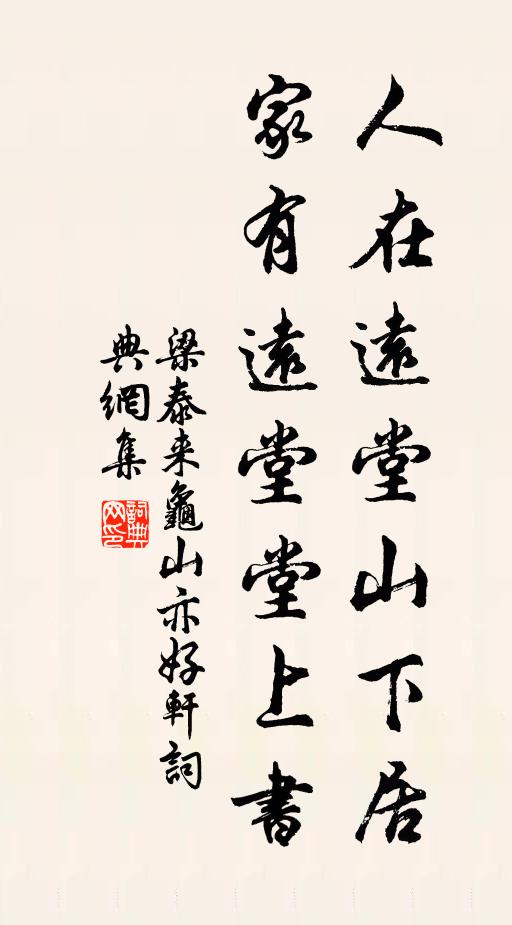 人在遠堂山下居
家有遠堂堂上書
梁泰来龜山亦好軒詞
典網集
詞典
网印